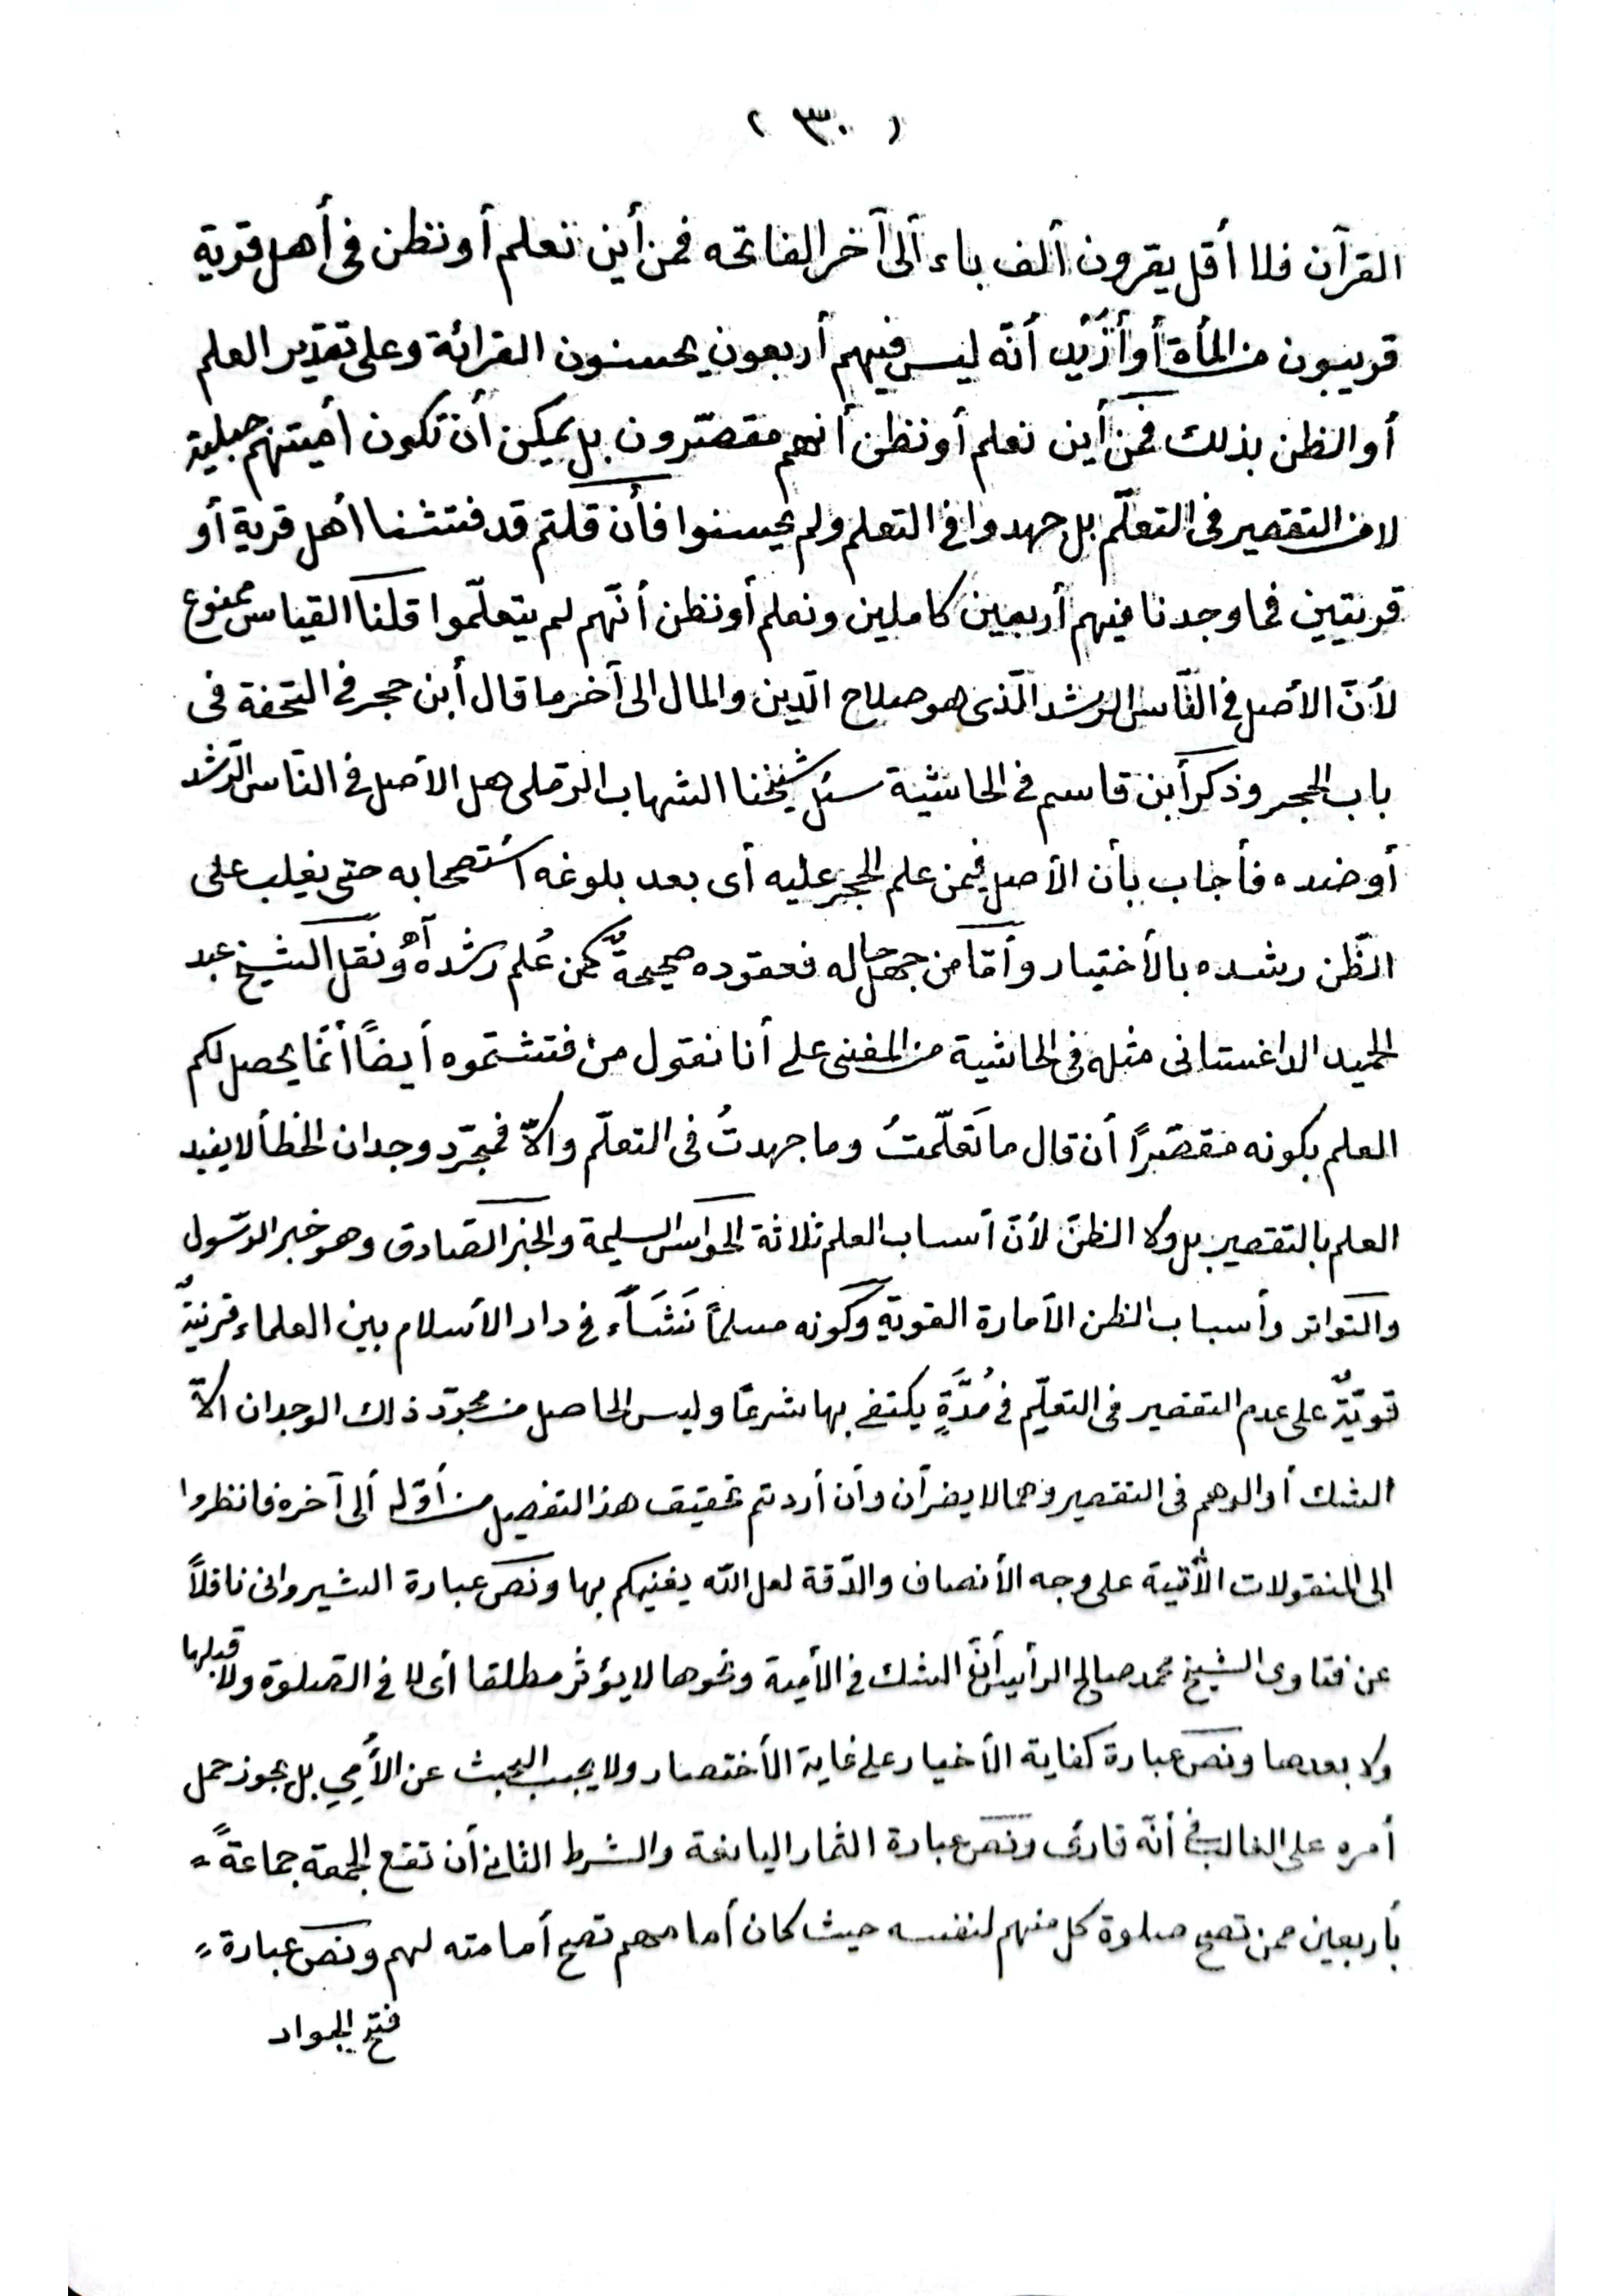 ( ٣٠ )
القرآن فلا أقل يقرون ألف باء ألى آخر الفاتحه فمن أين نعلم أو نظن فى أهل قرية
قريبون من المأة أو أزيد أنّه ليس فيهم أربعون يحسنون القرائة وعلى تقدير العلم
أو الظن بذلك فمن أين نعلم أو نظن أنهم مقصّرون بل يمكن أن تكون أميتهم جبلية
لا من التقصير فى التعلّم بل جهدوا فى التعلم ولم يحسنوا فأن قلتم قد فتشنا أهل قرية أو
قريتين فما وجدنا فيهم أربعين كاملين ونعلم أو نظن أنّهم لم يتعلّموا قلنا القياس ممنوع
لأنّ الأصل فى النّاس الرشد الّذى هو صلاح الّدين والمال الى آخر ما قال أبن حجر فى التحفة فى
باب الحجر وذكر أبن قاسم فى الحاشية سئل شيخنا الشهاب الرّملى هل الأصل فى النّاس الرّشد
أو ضده فأجاب بأن الأصل فيمن علم الحجر عليه أى بعد بلوغه أستصحابه حتى يغلب على
الظّن رشده بالأختبار وأمّا من جهل حاله فعقوده صحيحةٌ كمن عُلم رشده أهُ ونقل الشيخ عبد
الحميد الداغستانى مثله فى الحاشية من المغنى على أنا نقول من فتشتموه أيضاً أنّما يحصل لكم
العلم بكونه مقصّرًا أن قال ما تَعلّمتُ وما جهدتُ فى التعلّم والاّ فمجرّد وجدان الخطأ لا يفيد
العلم بالتقصير بل ولا الظنّ لأنّ أسباب العلم ثلاثة الحواس السليمة والخبر الصّادق وهو خبر الرّسول
والتواتر وأسباب الظن الأمارة القوية وكونه مسلمًا نَشَأَء فى دار الأسلام بين العلماء قرنيةٌ
قويّةٌ على عدم التقصير فى التعلّم فى مُدَّةٍ يكتفى بها شرعًا وليس الحاصل من مجرّد ذلك الوجدان الاّ
الشك أو الوهم فى التقصير وهما لا يضرّان وأن أردتم تحقيق هذ التفصيل من أوّله ألى آخره فانظروا
الى المنقولات الأٓتية على وجه الأنصاف والدّقة لعل الله يغنيكم بها ونصّ عبارة الشيروانى ناقلاً
عن فتاوى الشيخ محمد صالح الرأيس أنّ الشك فى الأمية ونحوها لا يؤثر مطلقا أى لا فى الصّلوة ولا قبلها
ولا بعدها ونصّ عبارة كفاية الأخيار على غاية الأختصار ولا يجب البحث عن الأُمي بل يجوز حمل
أمره على الغالب فى أنّه قارئ ونصّ عبارة الثمار اليانعة والشرط الثانى أن تقع الجمعة جماعةً =
بأربعين ممن تصح صلوة كل منهم لنفسه حيث كان أمامهم تصح أمامته لهم ونصّ عبارة =
فتح الجواد